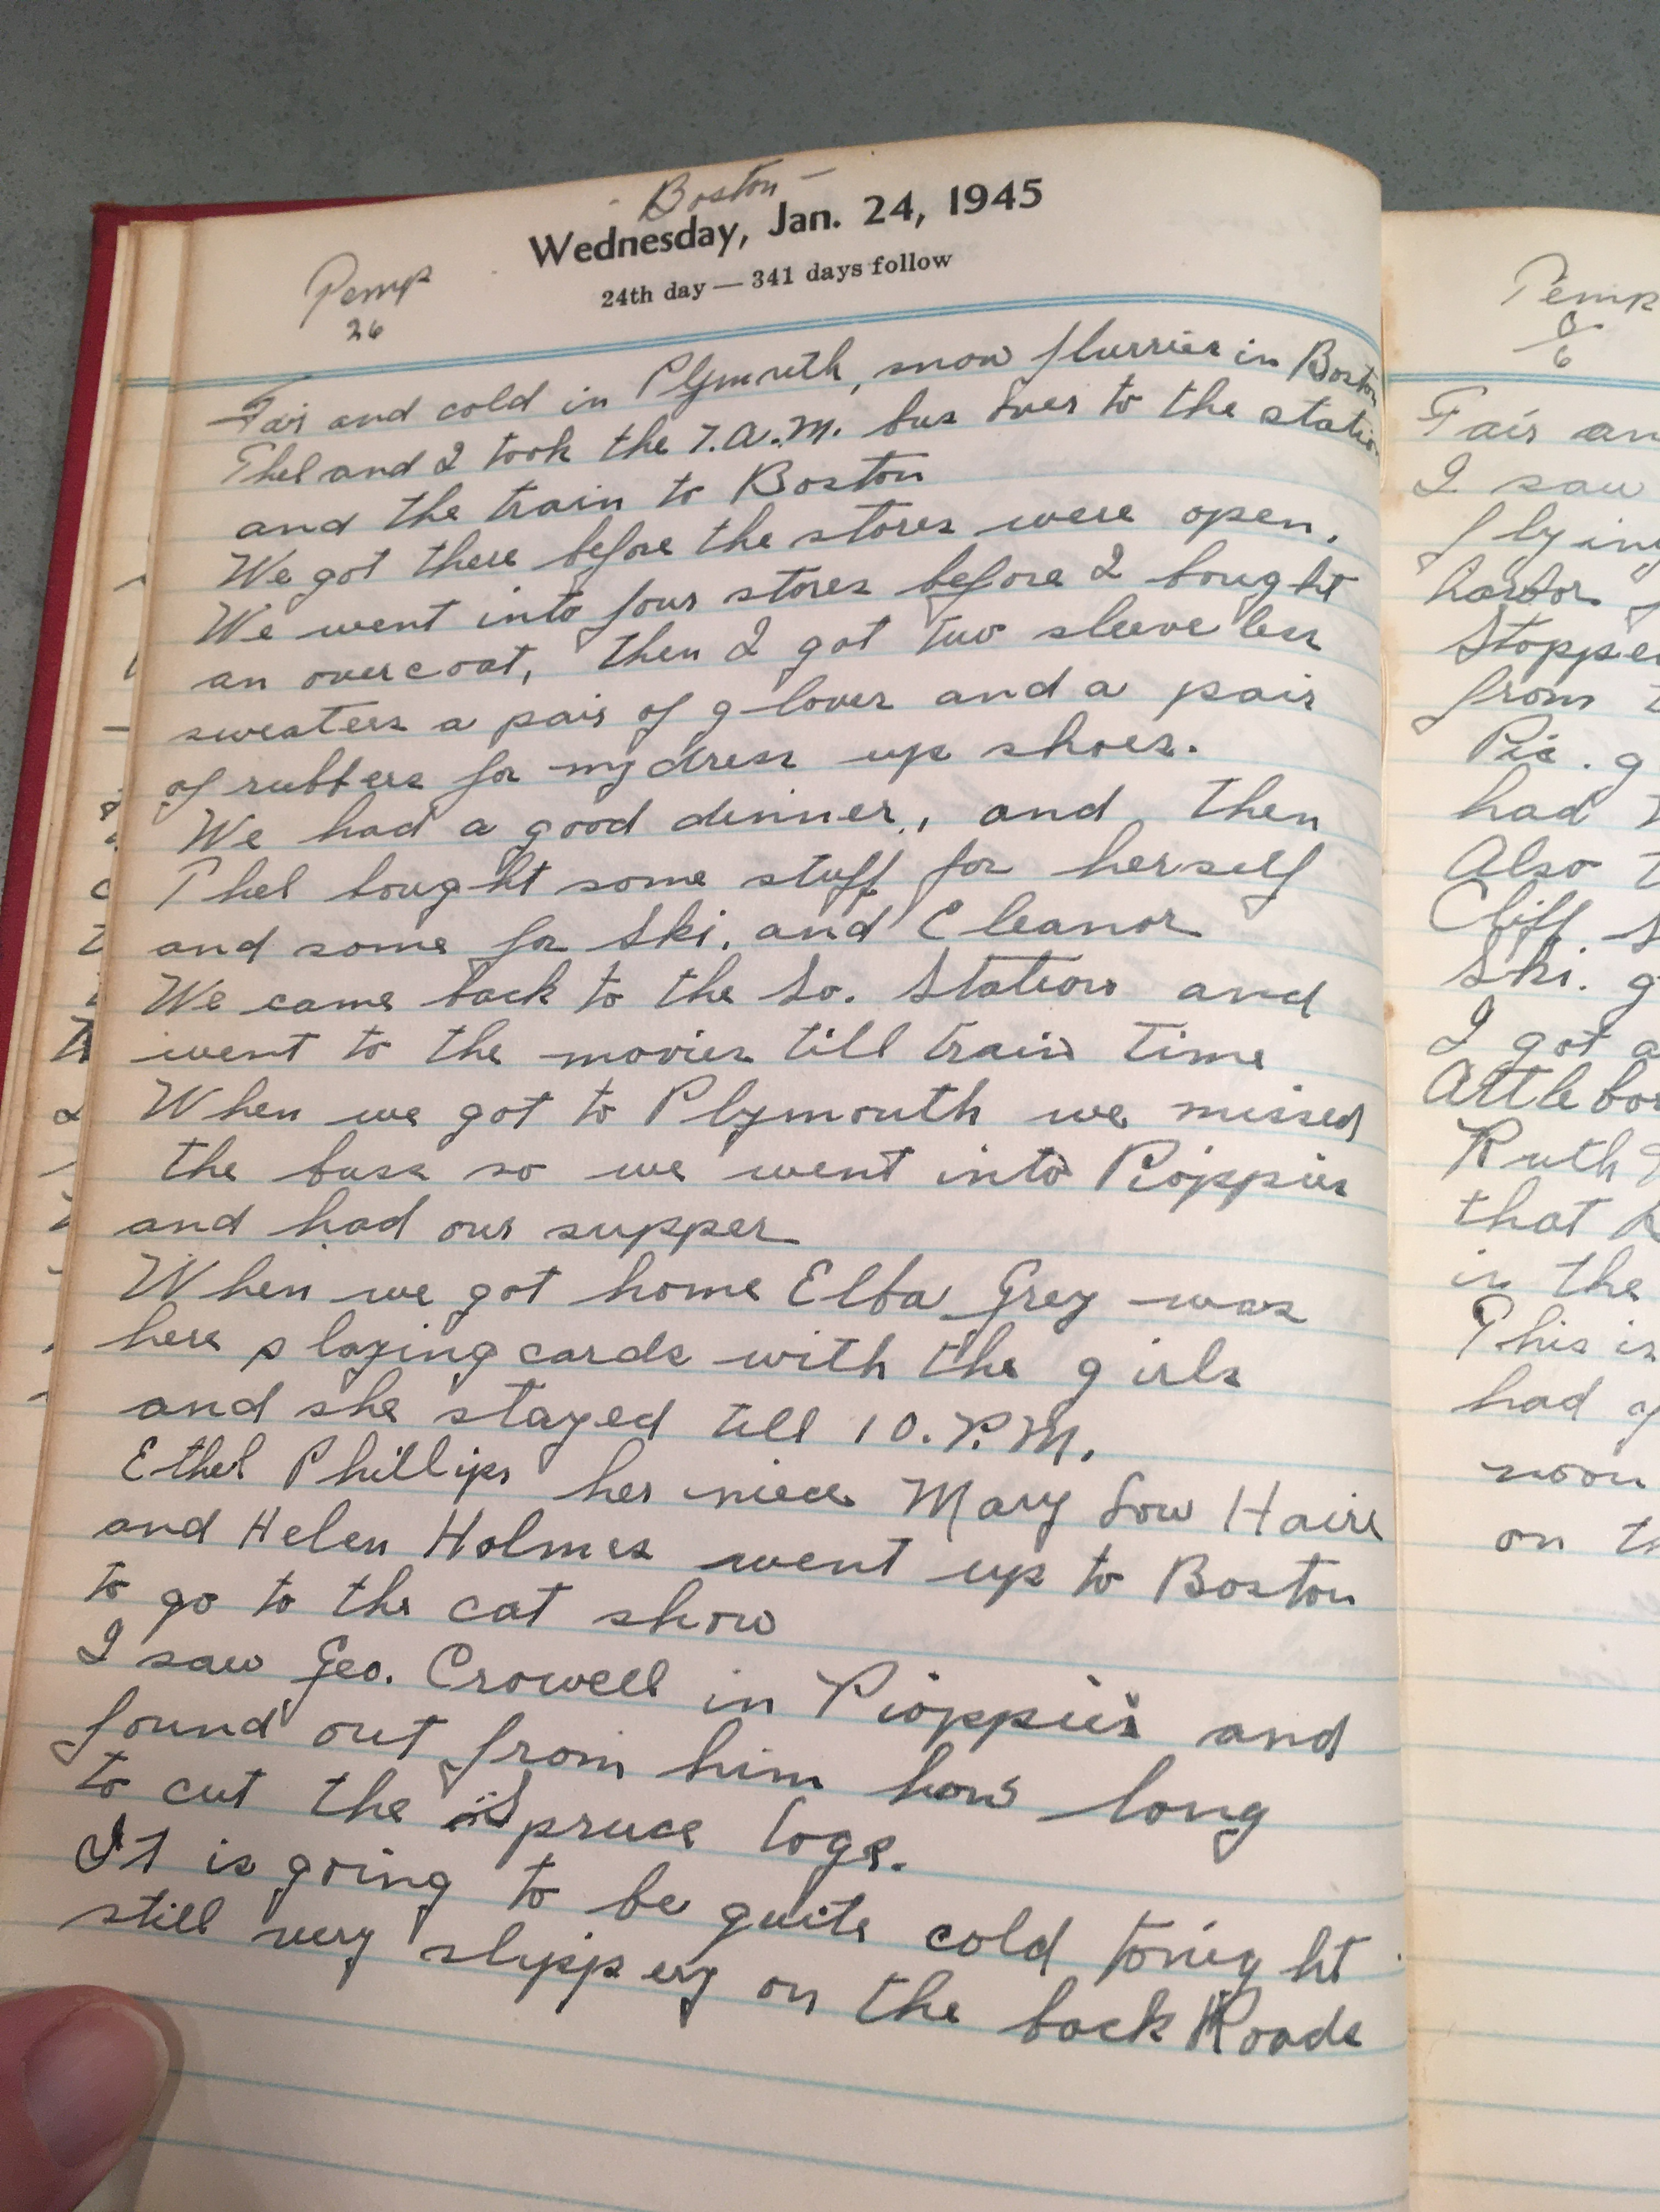 - Boston -
Wednesday, Jan. 24, 1945
24th day — 341 days follow
Temp
26
Fair and cold in Plymouth, snow flurries in Boston
Thel and I took the 7. A.M. bus over to the station
and the train to Boston
We got there before the stores were open.
We went into four stores before I bought
an overcoat, then I got two sleeveless
sweaters a pair of gloves and a pair
of rubbers for my dress up shoes.
We had a good dinner, and then
Thel bought some stuff for herself
and some for Ski. and Eleanor
We came back to the So. Station and
went to the movies till train time
When we got to Plymouth we missed
the buss so we went into Pioppies
and had our supper
When we got home Elba Grey was
here playing cards with the girls
and she stayed till 10. P.M.
Ethel Phillips her niece Mary Low
and Helen Holmes went up to Boston
to go to the cat show
I saw Geo. Crowell in Pioppies and
found out from him how long
to cut the Spruce logs.
It is going to be quite cold tonight
still very slippery on the back Roads
Temp
6
Fair an
I saw
flying
harbor
Stopper
from t
Pic. g
had t
Also t
Cliff. S
Ski. g
I got a
Attlebor
Ruth
that
in the
This is
had
noon
on th